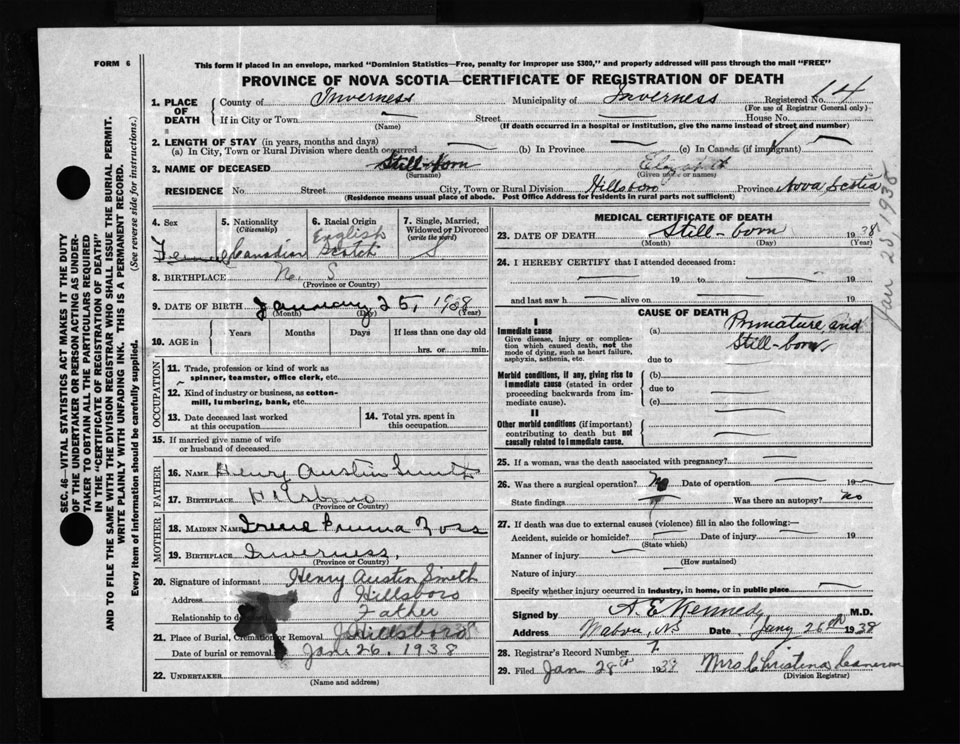 FORM 6
This form if placed in an envelope, marked "Dominion Statistics—Free, penalty for improper use $300," and properly addressed will pass through the mail "FREE"
PROVINCE OF NOVA SCOTIA—CERTIFICATE OF REGISTRATION OF DEATH
1. PLACE OF DEATH
County of Inverness Municipality of Inverness Registered No. 14
(For use of Registrar General only)
If in City or Town — Street — House No.
(Name) (If death occurred in a hospital or institution, give the name instead of street and number)
2. LENGTH OF STAY (in years, months and days)
(a) In City, Town or Rural Division where death occurred — (b) In Province — (c) In Canada (if immigrant) —
3. NAME OF DECEASED Still-born
(Surname) (Given name or names)
RESIDENCE No. Street City, Town or Rural Division Hillsboro Province Nova Scotia
(Residence means usual place of abode. Post Office Address for residents in rural parts not sufficient)
4. Sex 5. Nationality 6. Racial Origin 7. Single, Married,
(Citizenship) Widowed or Divorced
(write the word)
Female Canadian English Scotch S
8. BIRTHPLACE N. S
(Province or Country)
9. DATE OF BIRTH January 25, 1938
(Month) (Day) (Year)
10. AGE in Years Months Days If less than one day old
hrs. or min.
OCCUPATION
11. Trade, profession or kind of work as
spinner, teamster, office clerk, etc.
12. Kind of industry or business, as cotton-
mill, lumbering, bank, etc.
13. Date deceased last worked
at this occupation
14. Total yrs. spent in
this occupation
15. If married give name of wife
or husband of deceased
FATHER
16. NAME Henry Austin Smith
17. BIRTHPLACE Hilsboro
(Province or Country)
MOTHER
18. MAIDEN NAME Irene Ross
19. BIRTHPLACE Inverness,
(Province or Country)
20. Signature of informant Henry Austin Smith
Address Hillsboro
Relationship to d Father
21. Place of Burial, Cremation or Removal Hillsboro
Date of burial or removal Jan 26, 1938
22. UNDERTAKER
(Name and address)
MEDICAL CERTIFICATE OF DEATH
23. DATE OF DEATH Still-born 1938
(Month) (Day) (Year)
24. I HEREBY CERTIFY that I attended deceased from:
— 19 to — 19
and last saw h — alive on — 19
CAUSE OF DEATH
I
Immediate cause
Give disease, injury or complication which caused death, not the mode of dying, such as heart failure, asphyxia, asthenia, etc.
(a) Premature and
Still-born
due to —
Morbid conditions, if any, giving rise to immediate cause (stated in order proceeding backwards from immediate cause).
(b) —
due to —
(c) —
II
Other morbid conditions (if important) contributing to death but not causally related to immediate cause.
25. If a woman, was the death associated with pregnancy? —
26. Was there a surgical operation? No Date of operation — 19—
State findings — Was there an autopsy? No
27. If death was due to external causes (violence) fill in also the following:—
Accident, suicide or homicide? — Date of injury — 19
(State which)
Manner of injury —
(How sustained)
Nature of injury —
Specify whether injury occurred in industry, in home, or in public place —
Signed by A. E. Kennedy M.D.
Address Mabou, N.S Date Jany 26th 1938
28. Registrar's Record Number 7.
29. Filed Jan 28th 1938 Mrs Christina Cameron
(Division Registrar)
Jan 25, 1938
SEC. 46—VITAL STATISTICS ACT MAKES IT THE DUTY
OF THE UNDERTAKER OR PERSON ACTING AS UNDER-
TAKER TO OBTAIN ALL THE PARTICULARS REQUIRED
IN THE "CERTIFICATE OF REGISTRATION OF DEATH"
AND TO FILE THE SAME WITH THE DIVISION REGISTRAR WHO SHALL ISSUE THE BURIAL PERMIT.
WRITE PLAINLY WITH UNFADING INK. THIS IS A PERMANENT RECORD.
Every item of information should be carefully supplied. (See reverse side for instructions.)